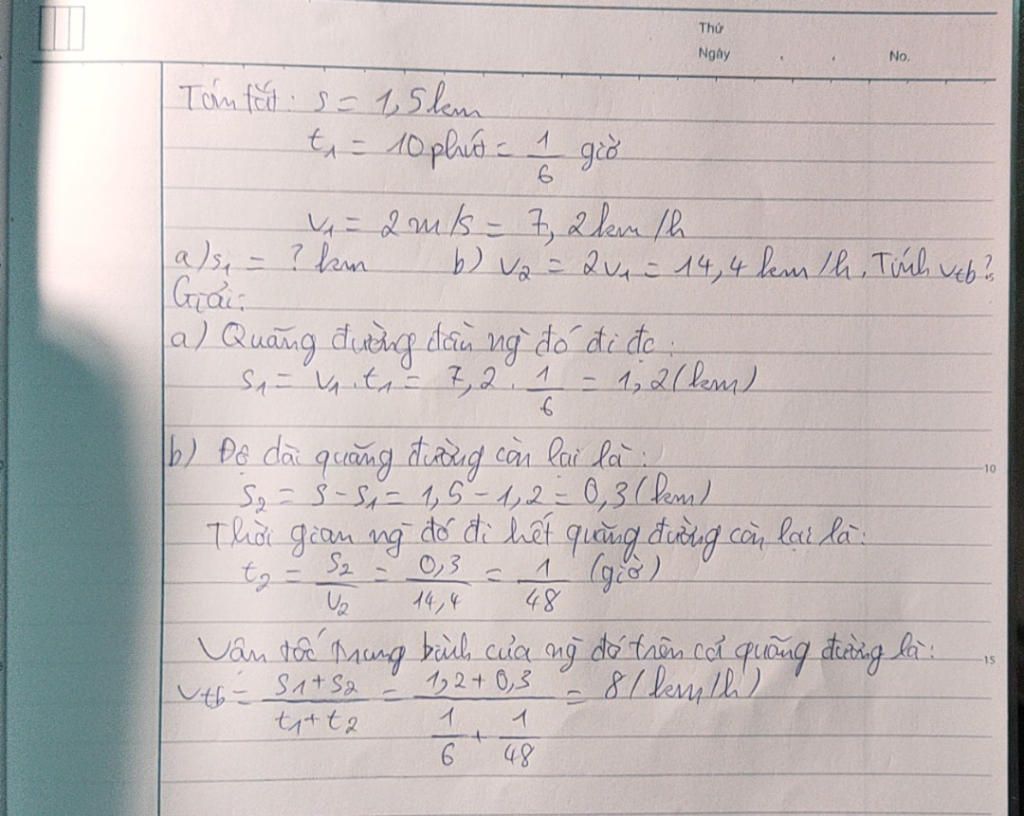 Thứ
Ngày . . No.
Tóm tắt: s = 1,5 km
t₁ = 10 phút = 1/6 giờ
v₁ = 2 m/s = 7,2 km/h
a) s₁ = ? km b) v₂ = 2v₁ = 14,4 km/h. Tính vtb?
Giải:
a) Quãng đường đầu ng` đó đi đc:
s₁ = v₁.t₁ = 7,2 . 1/6 = 1,2 (km)
b) Độ dài quãng đường còn lại là:
10
s₂ = s - s₁ = 1,5 - 1,2 = 0,3 (km)
Thời gian ng` đó đi hết quãng đường còn lại là:
t₂ = s₂/v₂ = 0,3/14,4 = 1/48 (giờ)
Vận tốc trung bình của ng` đó trên cả quãng đường là:
15
vtb = (s₁+s₂)/(t₁+t₂) = (1,2+0,3)/(1/6 + 1/48) = 8 (km/h)